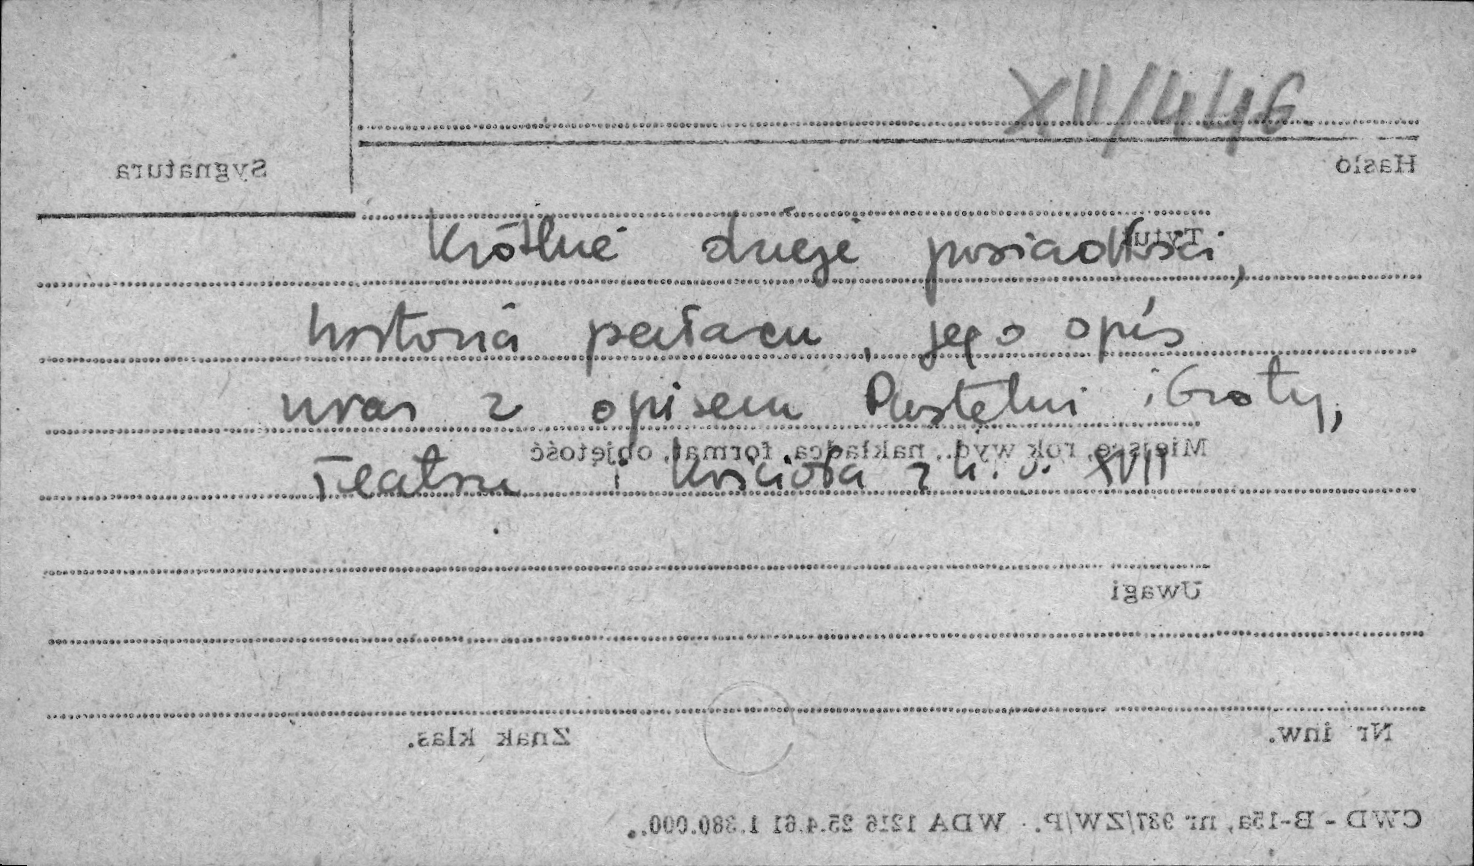 XII/446
Hasło
Sygnatura
Krótkie dzieje posiadłości,
Tytuł
historia pałacu, jego opis
wraz z opisem Pustelni i Groty,
Miejsce, rok wyd., nakładca, format, objętość
Teatru i Kościoła z k. w. XVII
Uwagi
Nr inw.
Znak klas.
CWD - B-15a, nr 987/ZW/P. WDA 1216 25.4.61 1.380.000.